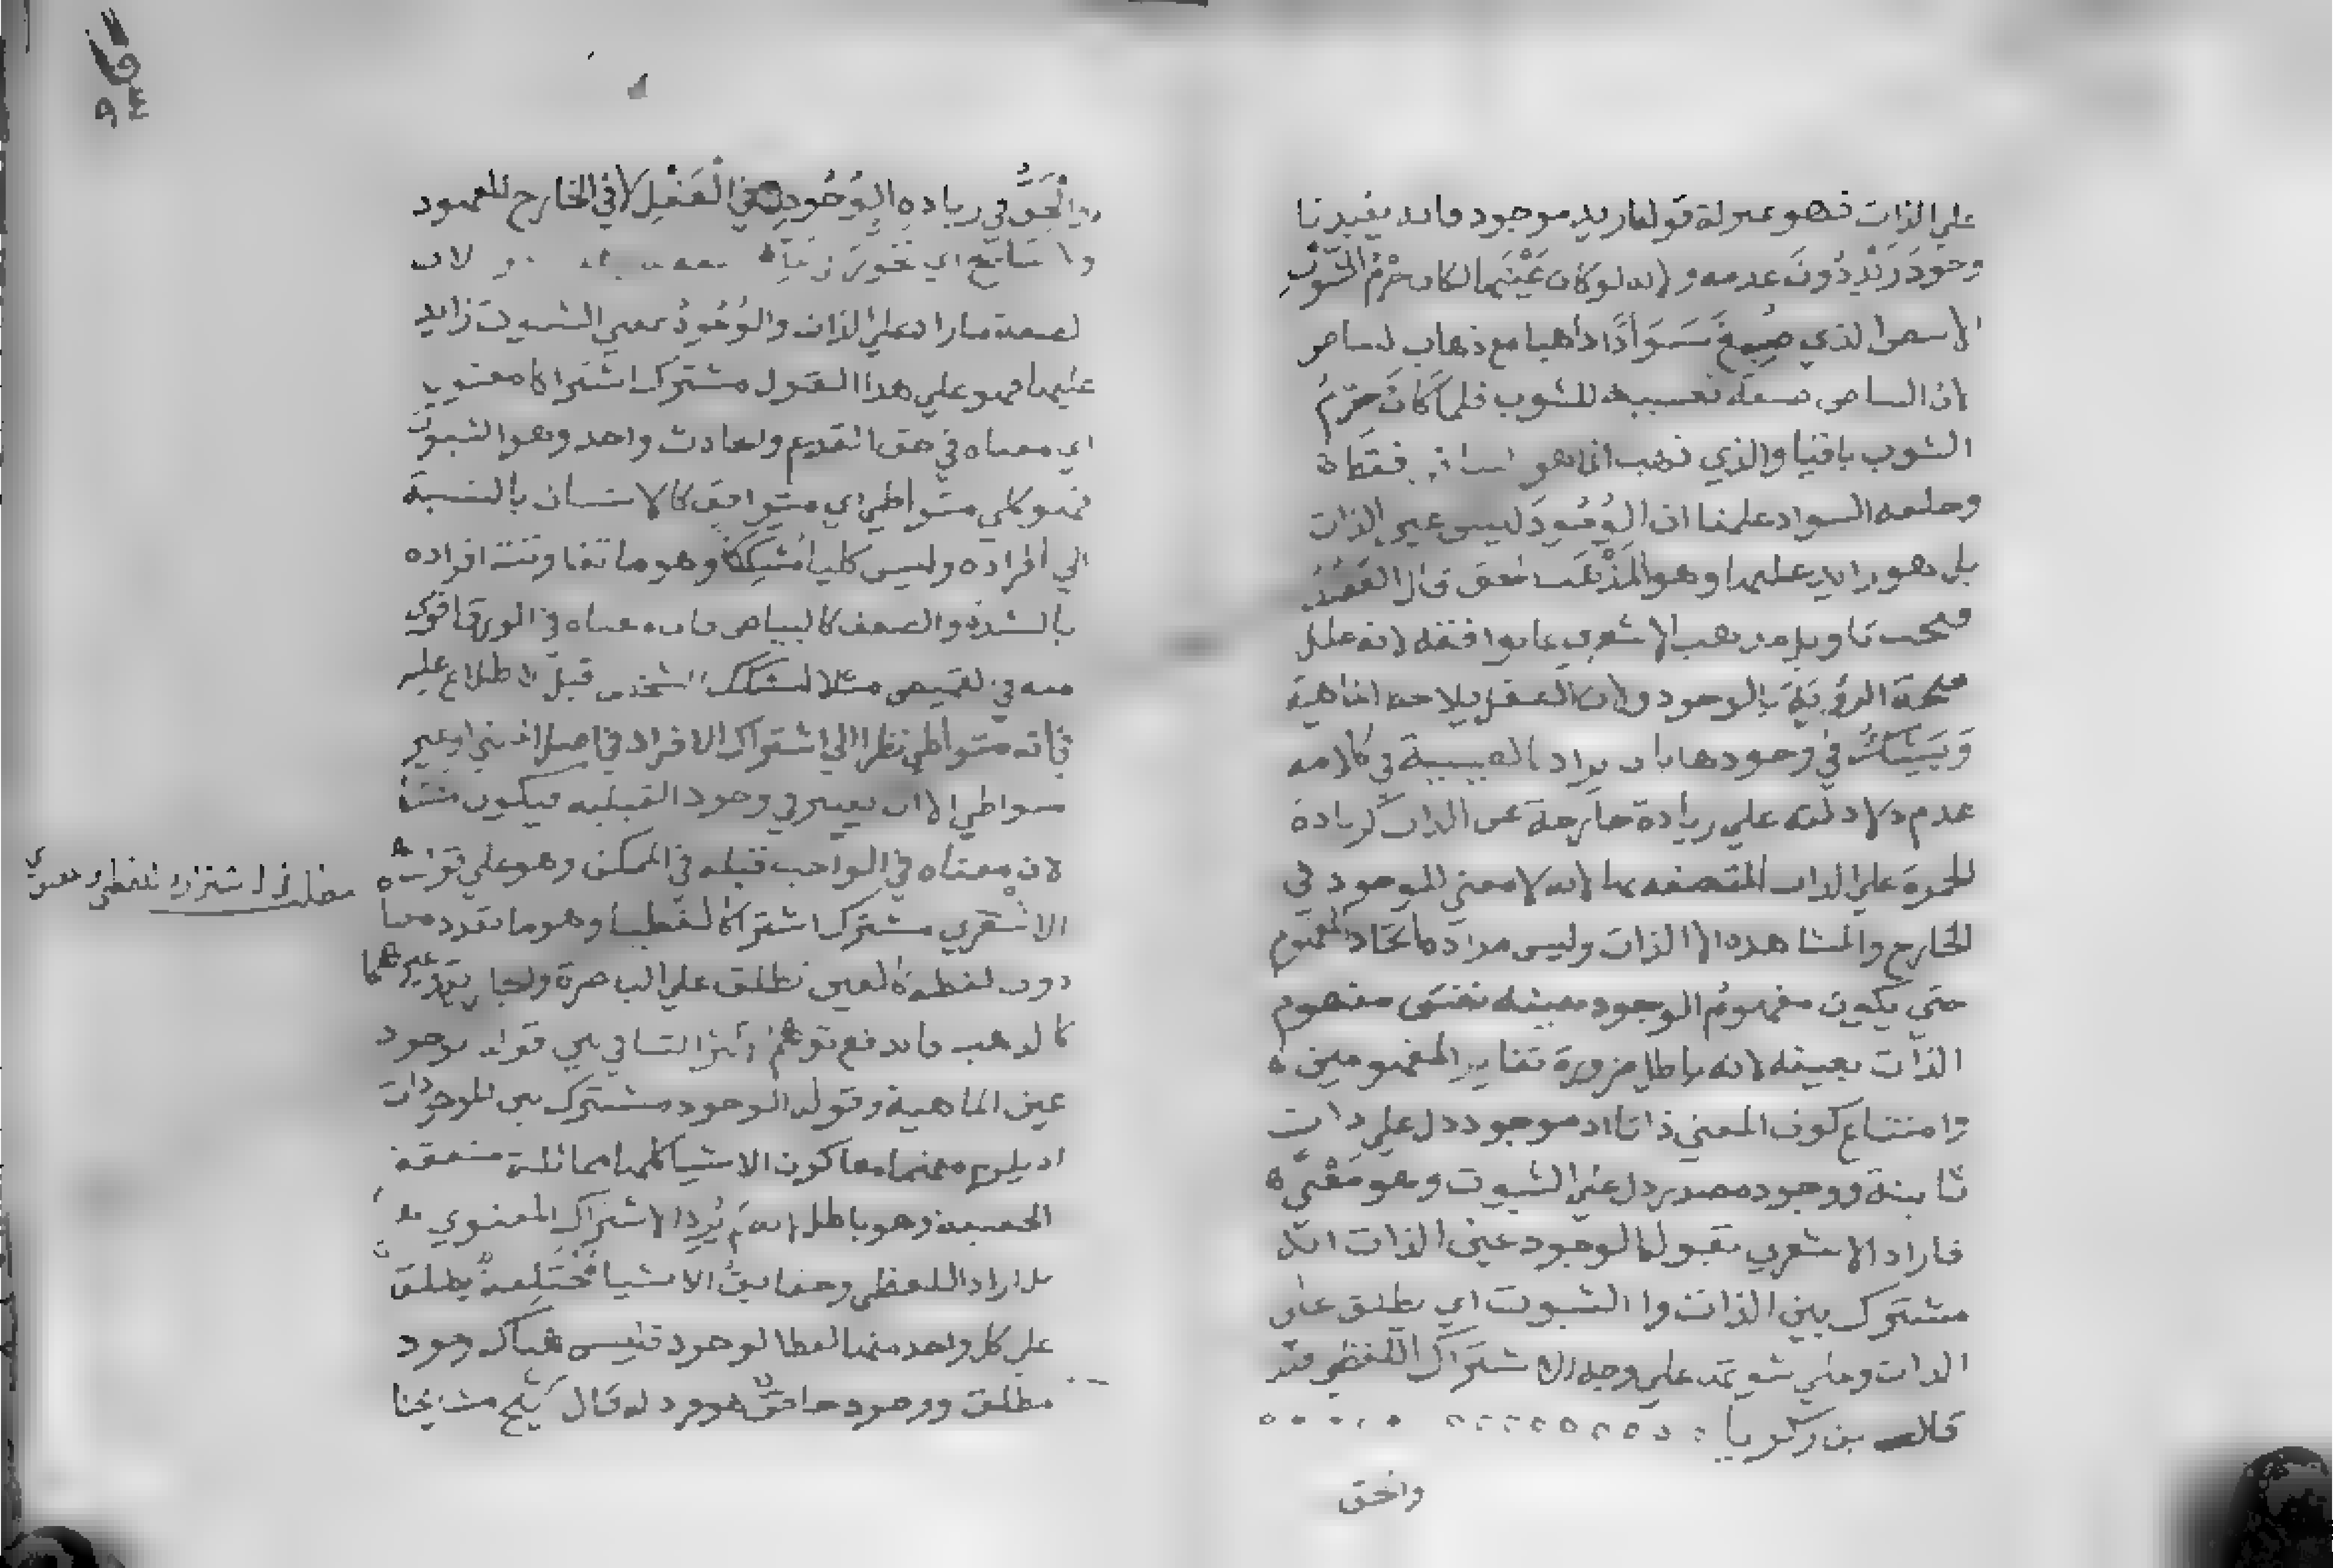 على الذات فهو بمنزلة قولنا زيد موجود فانه يفيدنا
وجودَ زيْدٍ دُونَ عدمه ولانه لو كان عَيْنَها لكان جِرْمُ الثَّوْبِ
الابيض الذي صُبِغَ سَوَادًا ذاهبا مع ذهاب البياض
لان البياض صفة نفسية للثوب فلما كَانَ جِرْمُ
الثوب باقيا والذي ذهب انما هو البياض فقط
وخلفه السواد علمنا ان الوُجُودَ ليس عين الذات
بل هو زايد عليها وهو المَذْهَب الحق قال العَضُد
فيجب تاويل مذهب الاشعري بما يوافقه لانه علل
صحة الرؤية بالوجود ولان العقل يلاحظ الماهية
وَيَشُكُّ في وجودها بان يراد بالعينية في كلامه
عدم دلالته على زيادة خارجة عن الذات كزيادة
الحمرة على الذات المتصفه بها لانه لا معنى للوجود في
الخارج والمشاهده الا الذات وليس مراده اتحاد المفهوم
حتى يكون مفهومُ الوجود بعينه نفس مفهوم
الذات بعينه لانه باطل ضرورة تغاير المفهومين
وامتناع كون المعنى ذاتا اذ موجود دل على ذات
ثابتة ووجود مصدر دل على الثبوت وهو مَعْنى
فاراد الاشعري بقوله الوجود عين الذات انه
مشترك بين الذات والثبوت اي يطلق على
الذات وعلى ثبوته على وجه الاشتراك اللفظي فقد
قال بن زكريا
والحق
والْحَقُّ في زياده الوُجُودِ في الْعَقْلِ لا في الخارج للمعهود
ولا تابع اي نحو لان
لصفة ما زاد على الذات والوُجُودُ بمعنى الثبوت زايد
عليها فهو على هذا القول مشترك اشتراكا معنويا
اي معناه في حق القديم والحادث واحد وهو الثبوت
فهو كلي متواطي اي متوافق كالانسان بالنسبة
الى افراده وليس كليا مُشَكِّكا وهو ما تفاوتت افراده
بالشدة والضعف كالبياض فان معناه في الورق اقوى
منه في القميص مثلا لتشكك الشخص قبل الاطلاع عليه
فانه متواطي نظرا الى اشتراك الافراد في اصل المعنى او غير
متواطي الا ان يعتبر في وجود القبليه فيكون
لان معناه في الواجب قبله في الممكن وهو على قول
الاشعري مشترك اشتراكا لفظيا وهو ما تعدد معناه
دون لفظه كالعين تطلق على الباصرة والجارية وغيرهما
كالذهب فاندفع توهُّمُ التنافي بين قوله بوجود
عين الماهية وقوله الوجود مشترك بين الموجودات
اذ يلزم منهما معا كون الاشيا كلها متماثلة متفقة
الحقيقة وهو باطل لانه لم يُرِد الاشتراك المعنوي
بل اراد اللفظي وحقايقُ الاشيا مُخْتَلِفةٌ يطلق
على كل واحد منها لفظ الوجود فليس هناك وجود
مطلق ووجود خاصٌّ هو فرد له قال شيخ مشايخنا
مطلب في اشتراك لفظي ومعنوي